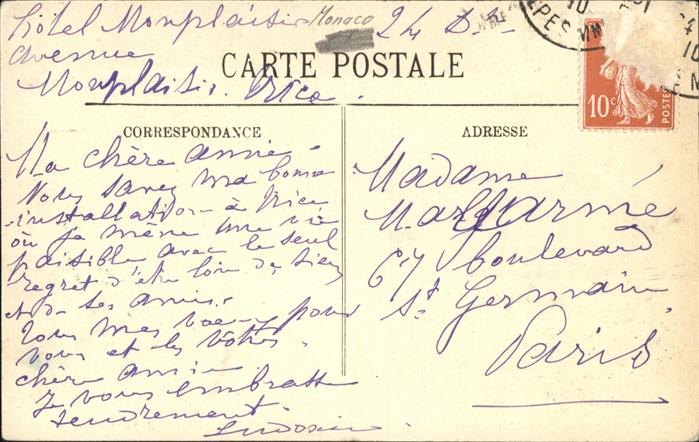 Hôtel Monplaisir
Monaco
24 D.
Avenue
Monplaisir. Nice.
CARTE POSTALE
CORRESPONDANCE
ADRESSE
10c
POSTES
Ma chère amie
Vous savez ma bonne
installation à Nice
où je mène une vie
paisible avec le seul
regret d'être loin des siens
et de ses amis.
Tous mes voeux pour
vous et les vôtres
chère amie
Je vous embrasse
tendrement
Madame
67 boulevard
St Germain
Paris